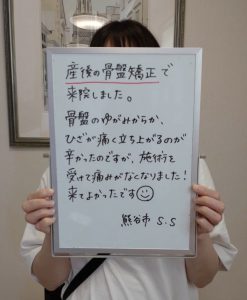 産後の骨盤矯正で
来院しました。
骨盤のゆがみからか、
ひざが痛く立ち上がるのが
辛かったのですが、施術を
受けて痛みがなくなりました！
来てよかったです☺
熊谷市 S.S